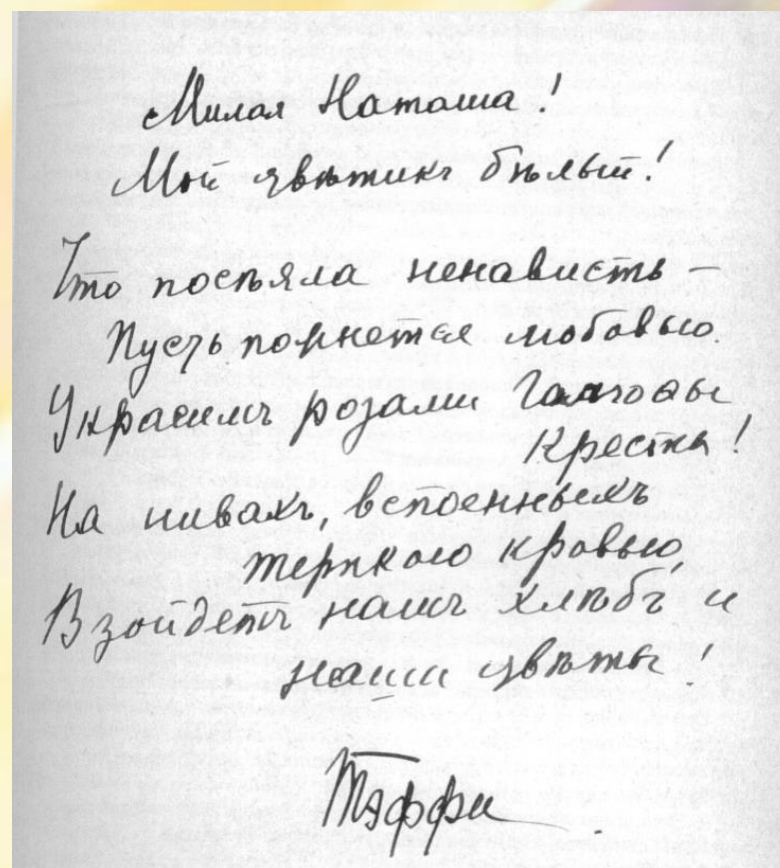 Милая Наташа!
Мой цвѣтикъ бѣлый!
Что посѣяла ненависть —
Пусть пожнется любовью.
Украсимъ розами Голгоѳы
Кресты!
На нивахъ, вспоенныхъ
терпкою кровью,
Взойдетъ нашъ хлѣбъ и
наши цвѣты!
Тэффи